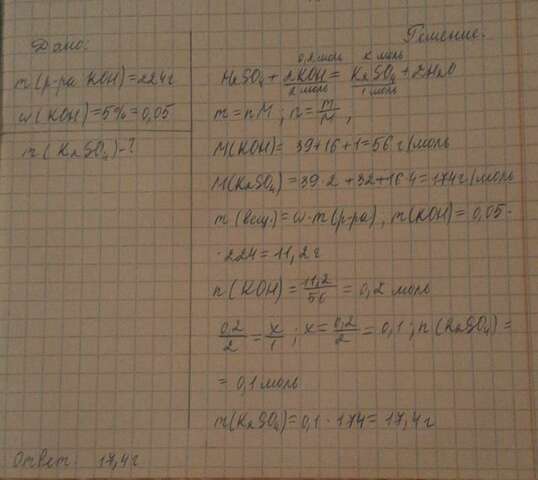 Дано:
m(р-ра KOH)=224г
w(KOH)=5%=0,05
m(K₂SO₄)-?
Решение.
0,2 моль x моль
H₂SO₄ + 2KOH = K₂SO₄ + 2H₂O
2 моль 1 моль
m=nM; n=m/M;
M(KOH)=39+16+1=56 г/моль
M(K₂SO₄)=39·2+32+16·4=174 г/моль
m(вещ.)=w·m(р-ра), m(KOH)=0,05·
·224=11,2 г
n(KOH)=11,2/56=0,2 моль
0,2/2=x/1; x=0,2/2=0,1; n(K₂SO₄)=
=0,1 моль
m(K₂SO₄)=0,1·174=17,4 г
Ответ: 17,4 г